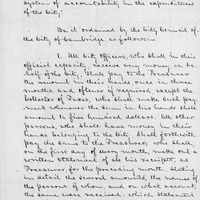 system of accountability in the expenditures
of the city;
Be it ordained by the city council of
the city of Cambridge as follows:
1. All city officers, who shall in their
official capacity receive any money on be
half of the city, shall pay to the Treasurer
the amount in their hands once in three
months, and oftener if required, except the
Collector of Taxes, who shall make such pay
ment whenever the sum in his hands shall
amount to five hundred dollars. All other
persons, who shall have monies in their
hands belonging to the city, shall forthwith
pay the same to the Treasurer, who shall
on the first day of every month, make out a
written statement of all his receipts, as
Treasurer for the preceding month, stating
in detail the several amounts, the names of
the persons of whom, and on what account,
the same were received: which statement